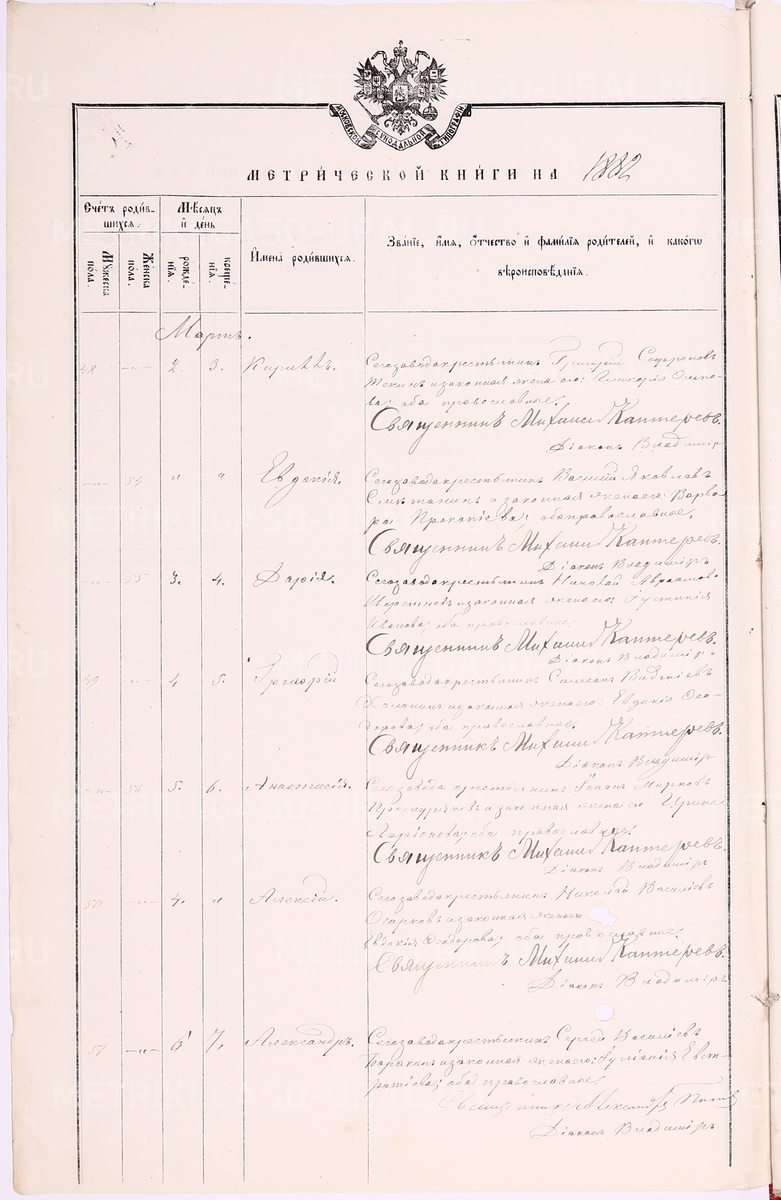 МОСКОВСКОЙ СѴНОДАЛЬНОЙ ТИПОГРАФІИ
МЕТРИ́ЧЕСКОЙ КНИ́ГИ НА 1882
Счётъ роди́в-
шихся.
Мѣсяцъ
и де́нь
Му́жеска
пола.
Же́нска
пола.
рожде́-
нія.
креще́-
нія.
Имена̀ роди́вшихся.
Зва́ніе, и́мя, о́тчество и фами́лія роди́телей, и како́гѡ
вѣроисповѣ́данія.
Мартъ.
48 -„- 2. 3. Кириллъ.
Сегозавода крестьянинъ Григорій Софроновъ
и законная жена его: Гликерія Осипо-
ва; оба православные.
Священникъ Михаилъ Каптеревъ.
Діаконъ Владиміръ
-„- 54 „ „ Евдокія.
Сегозавода крестьянинъ Василій Яковлевъ
Сметанинъ и законная жена его: Варва-
ра Прокопіева; оба православные.
Священникъ Михаилъ Каптеревъ.
Діаконъ Владиміръ
-„- 55 3. 4. Дарія.
Сегозавода крестьянинъ Николай Авраамовъ
и законная жена его: Іустинія
Иванова; оба православные.
Священникъ Михаилъ Каптеревъ.
Діаконъ Владиміръ
49 -„- 4 5. Григорій
Сегозавода крестьянинъ Симеонъ
и законная жена его: Евдокія Ѳео-
дорова; оба православные.
Священникъ Михаилъ Каптеревъ.
Діаконъ Владиміръ
-„- 56 5. 6. Анастасія.
Сегозавода крестьянинъ Іоаннъ Марковъ
Проскуряковъ и законная жена его Ирина
Ларіонова; оба православные.
Священникъ Михаилъ Каптеревъ.
Діаконъ Владиміръ
50 -„- 4. „ Алексій.
Сегозавода крестьянинъ Николай Василіевъ
Огарковъ и законная жена его
Евдокія Ѳеодорова; оба православные.
Священникъ Михаилъ Каптеревъ.
Діаконъ Владиміръ
51 -„- 6 7. Александръ.
Сегозавода крестьянинъ Сергій Василіевъ
и законная жена его: Іуліанія Евст-
ратіева; оба православные.
Священникъ Александръ
Діаконъ Владиміръ